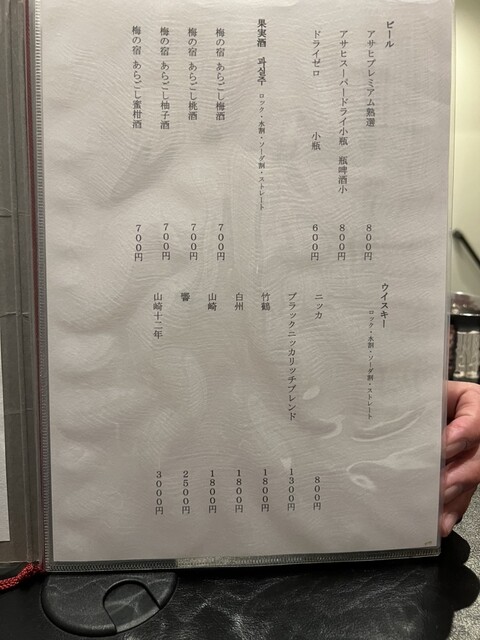 ビール
アサヒプレミアム熟選 800円
アサヒスーパードライ小瓶 瓶啤酒小 800円
ドライゼロ 小瓶 600円
果実酒 과실주 ロック・水割・ソーダ割・ストレート
梅の宿 あらごし梅酒 700円
梅の宿 あらごし桃酒 700円
梅の宿 あらごし柚子酒 700円
梅の宿 あらごし蜜柑酒 700円
ウイスキー
ロック・水割・ソーダ割・ストレート
ニッカ 800円
ブラックニッカリッチブレンド 1300円
竹鶴 1800円
白州 1800円
山崎 1800円
響 2500円
山崎十二年 3000円